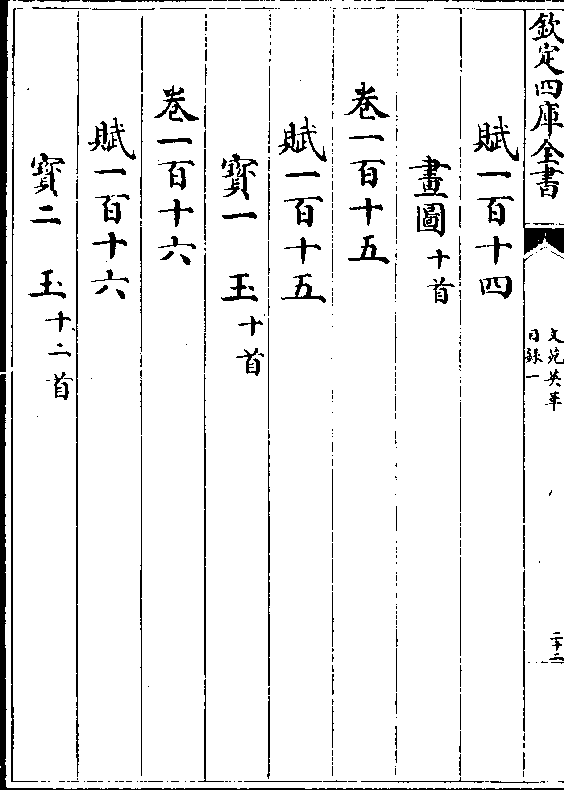 欽定四庫全書
文苑英華
目錄一
二十二
賦一百十四
畫圖十首
卷一百十五
賦一百十五
寶一 玉十首
卷一百十六
賦一百十六
寶二 玉十二首